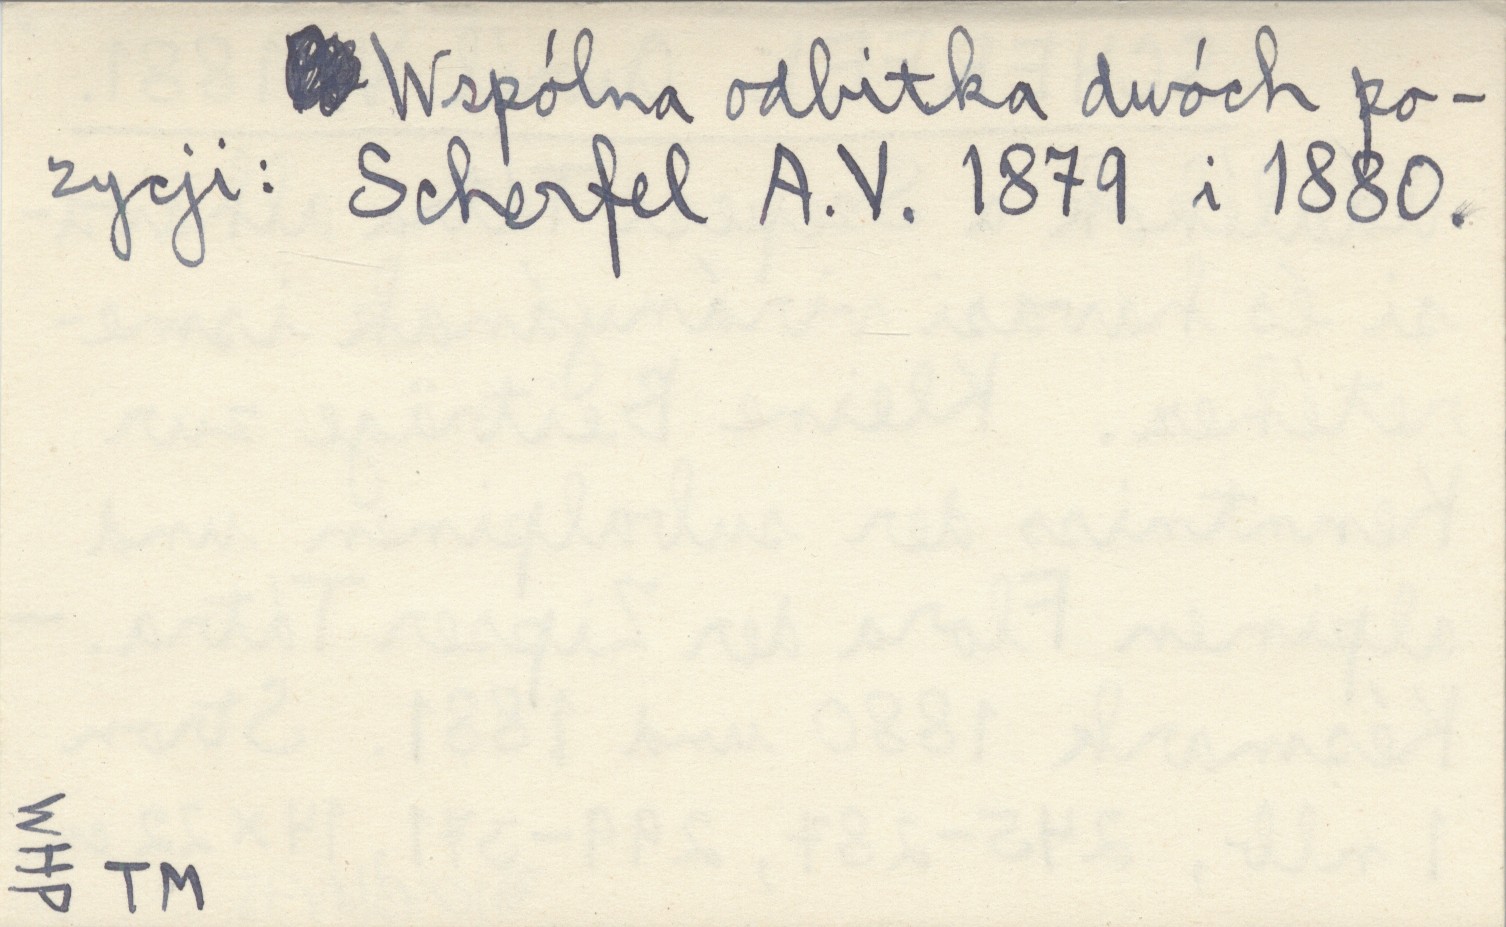 Wspólna odbitka dwóch po-
zycji: Scherfel A.V. 1879 i 1880.
WHP
TM